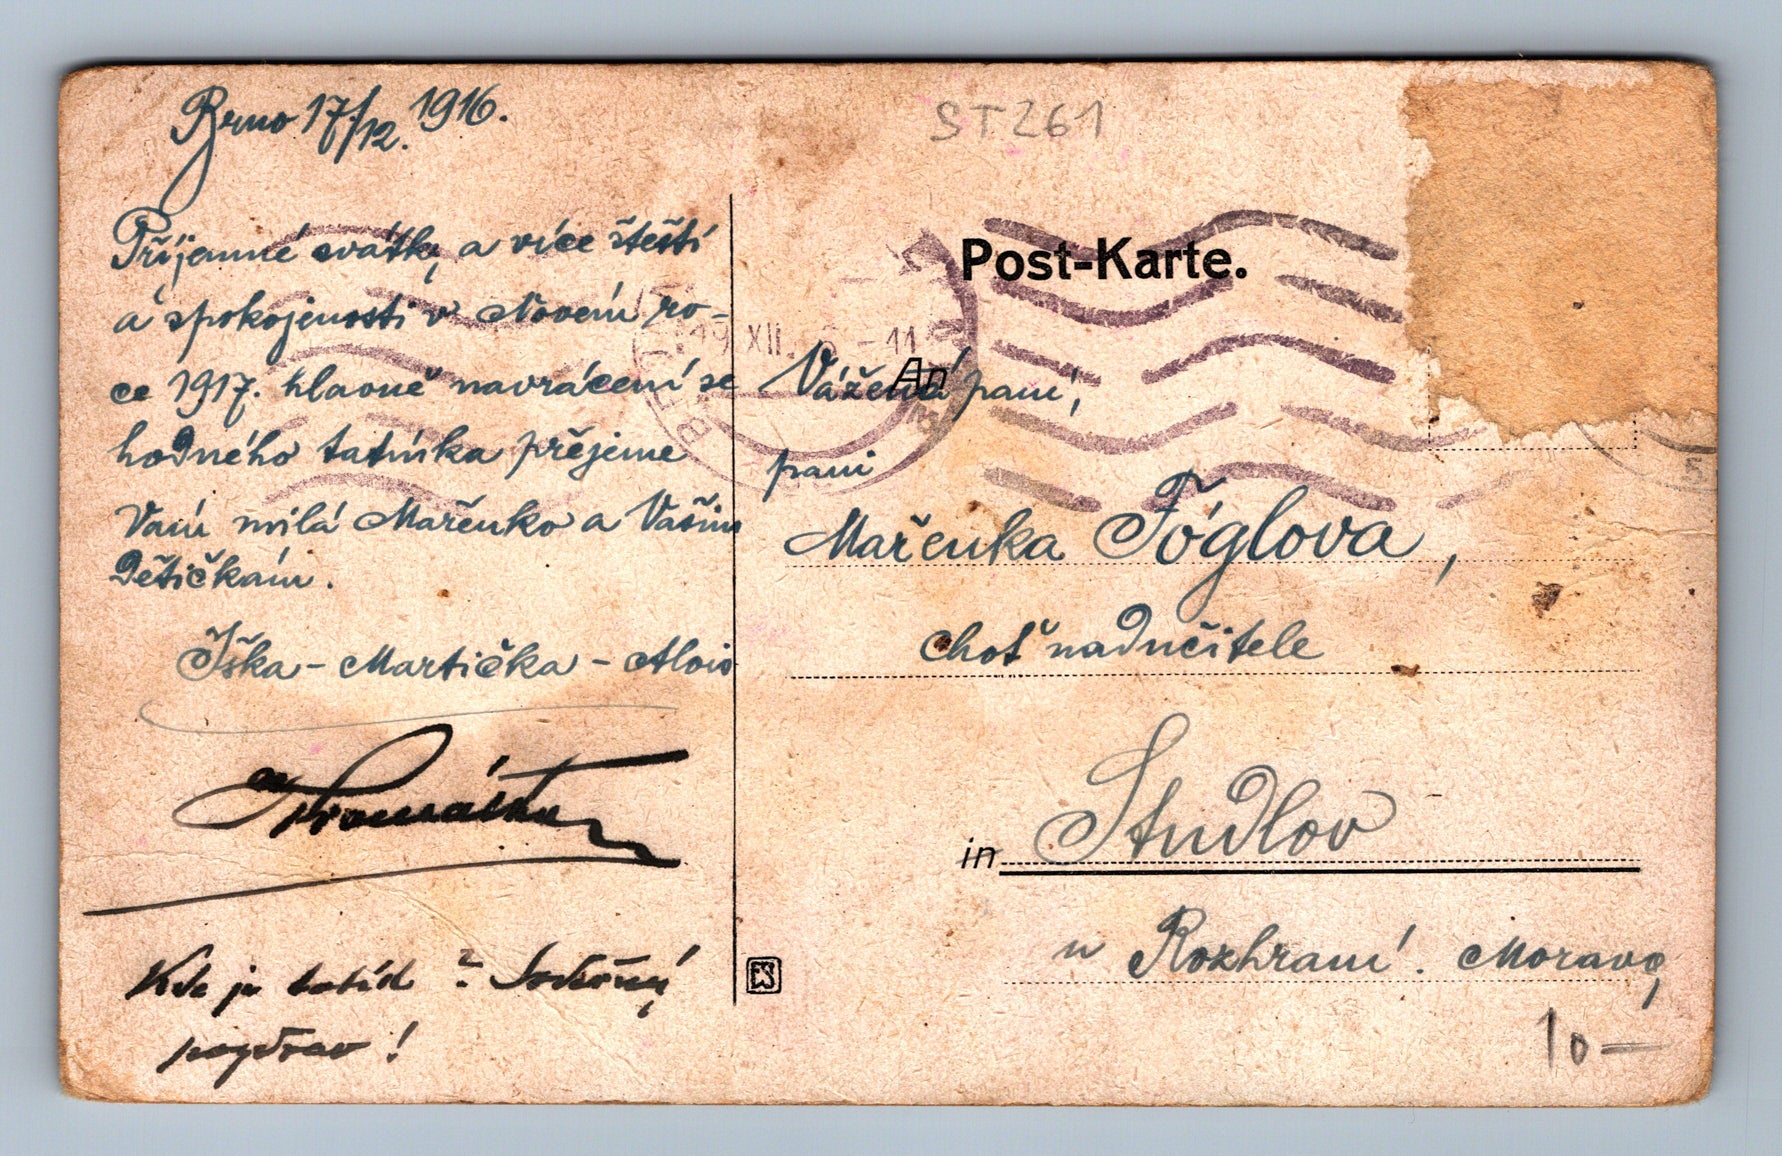 Brno 17/12. 1916.
Příjemné svátky a více štěstí
a spokojenosti v Novém ro-
ce 1917. hlavně navrácení se
hodného tatínka přejeme
Vám milá Mařenko a Vašim
dětičkám.
Jška - Martička - Alois
Kde je tatíd ? Srdečný
pozdrav !
ST261
Post-Karte.
19 XII. 6 - 11
An
Vážená paní,
paní
Mařenka Fóglova,
choť nadučitele
in Studlov
u Rozhraní. Morava
10-